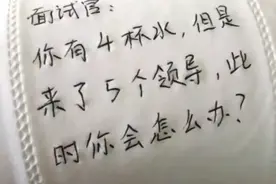 面试官:
你有4杯水,但是
来了5个领导,此
时你会怎么办?